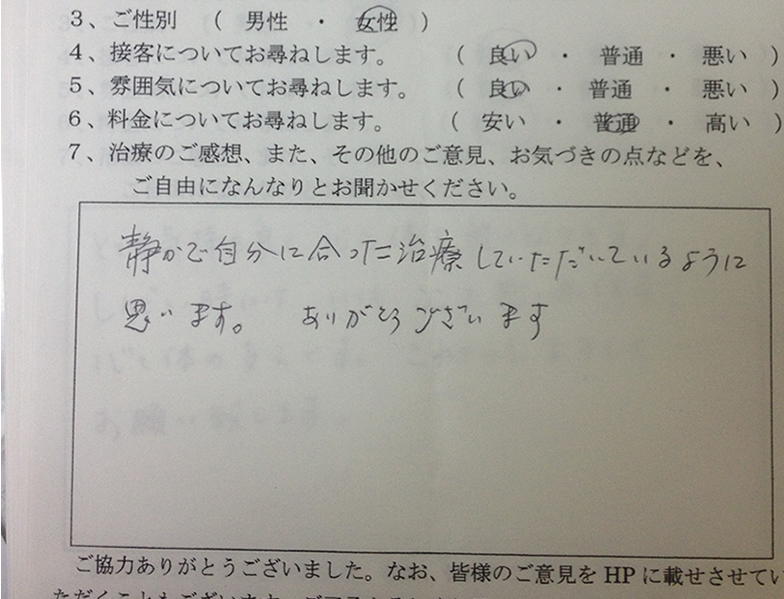 3、ご性別　（　男性　・　女性　）
4、接客についてお尋ねします。　（　良い　・　普通　・　悪い　）
5、雰囲気についてお尋ねします。　（　良い　・　普通　・　悪い　）
6、料金についてお尋ねします。　（　安い　・　普通　・　高い　）
7、治療のご感想、また、その他のご意見、お気づきの点などを、
ご自由になんなりとお聞かせください。
静かで自分に合った治療していただいているように
思います。　ありがとうございます
ご協力ありがとうございました。なお、皆様のご意見をHPに載せさせてい
ただくこともございます。